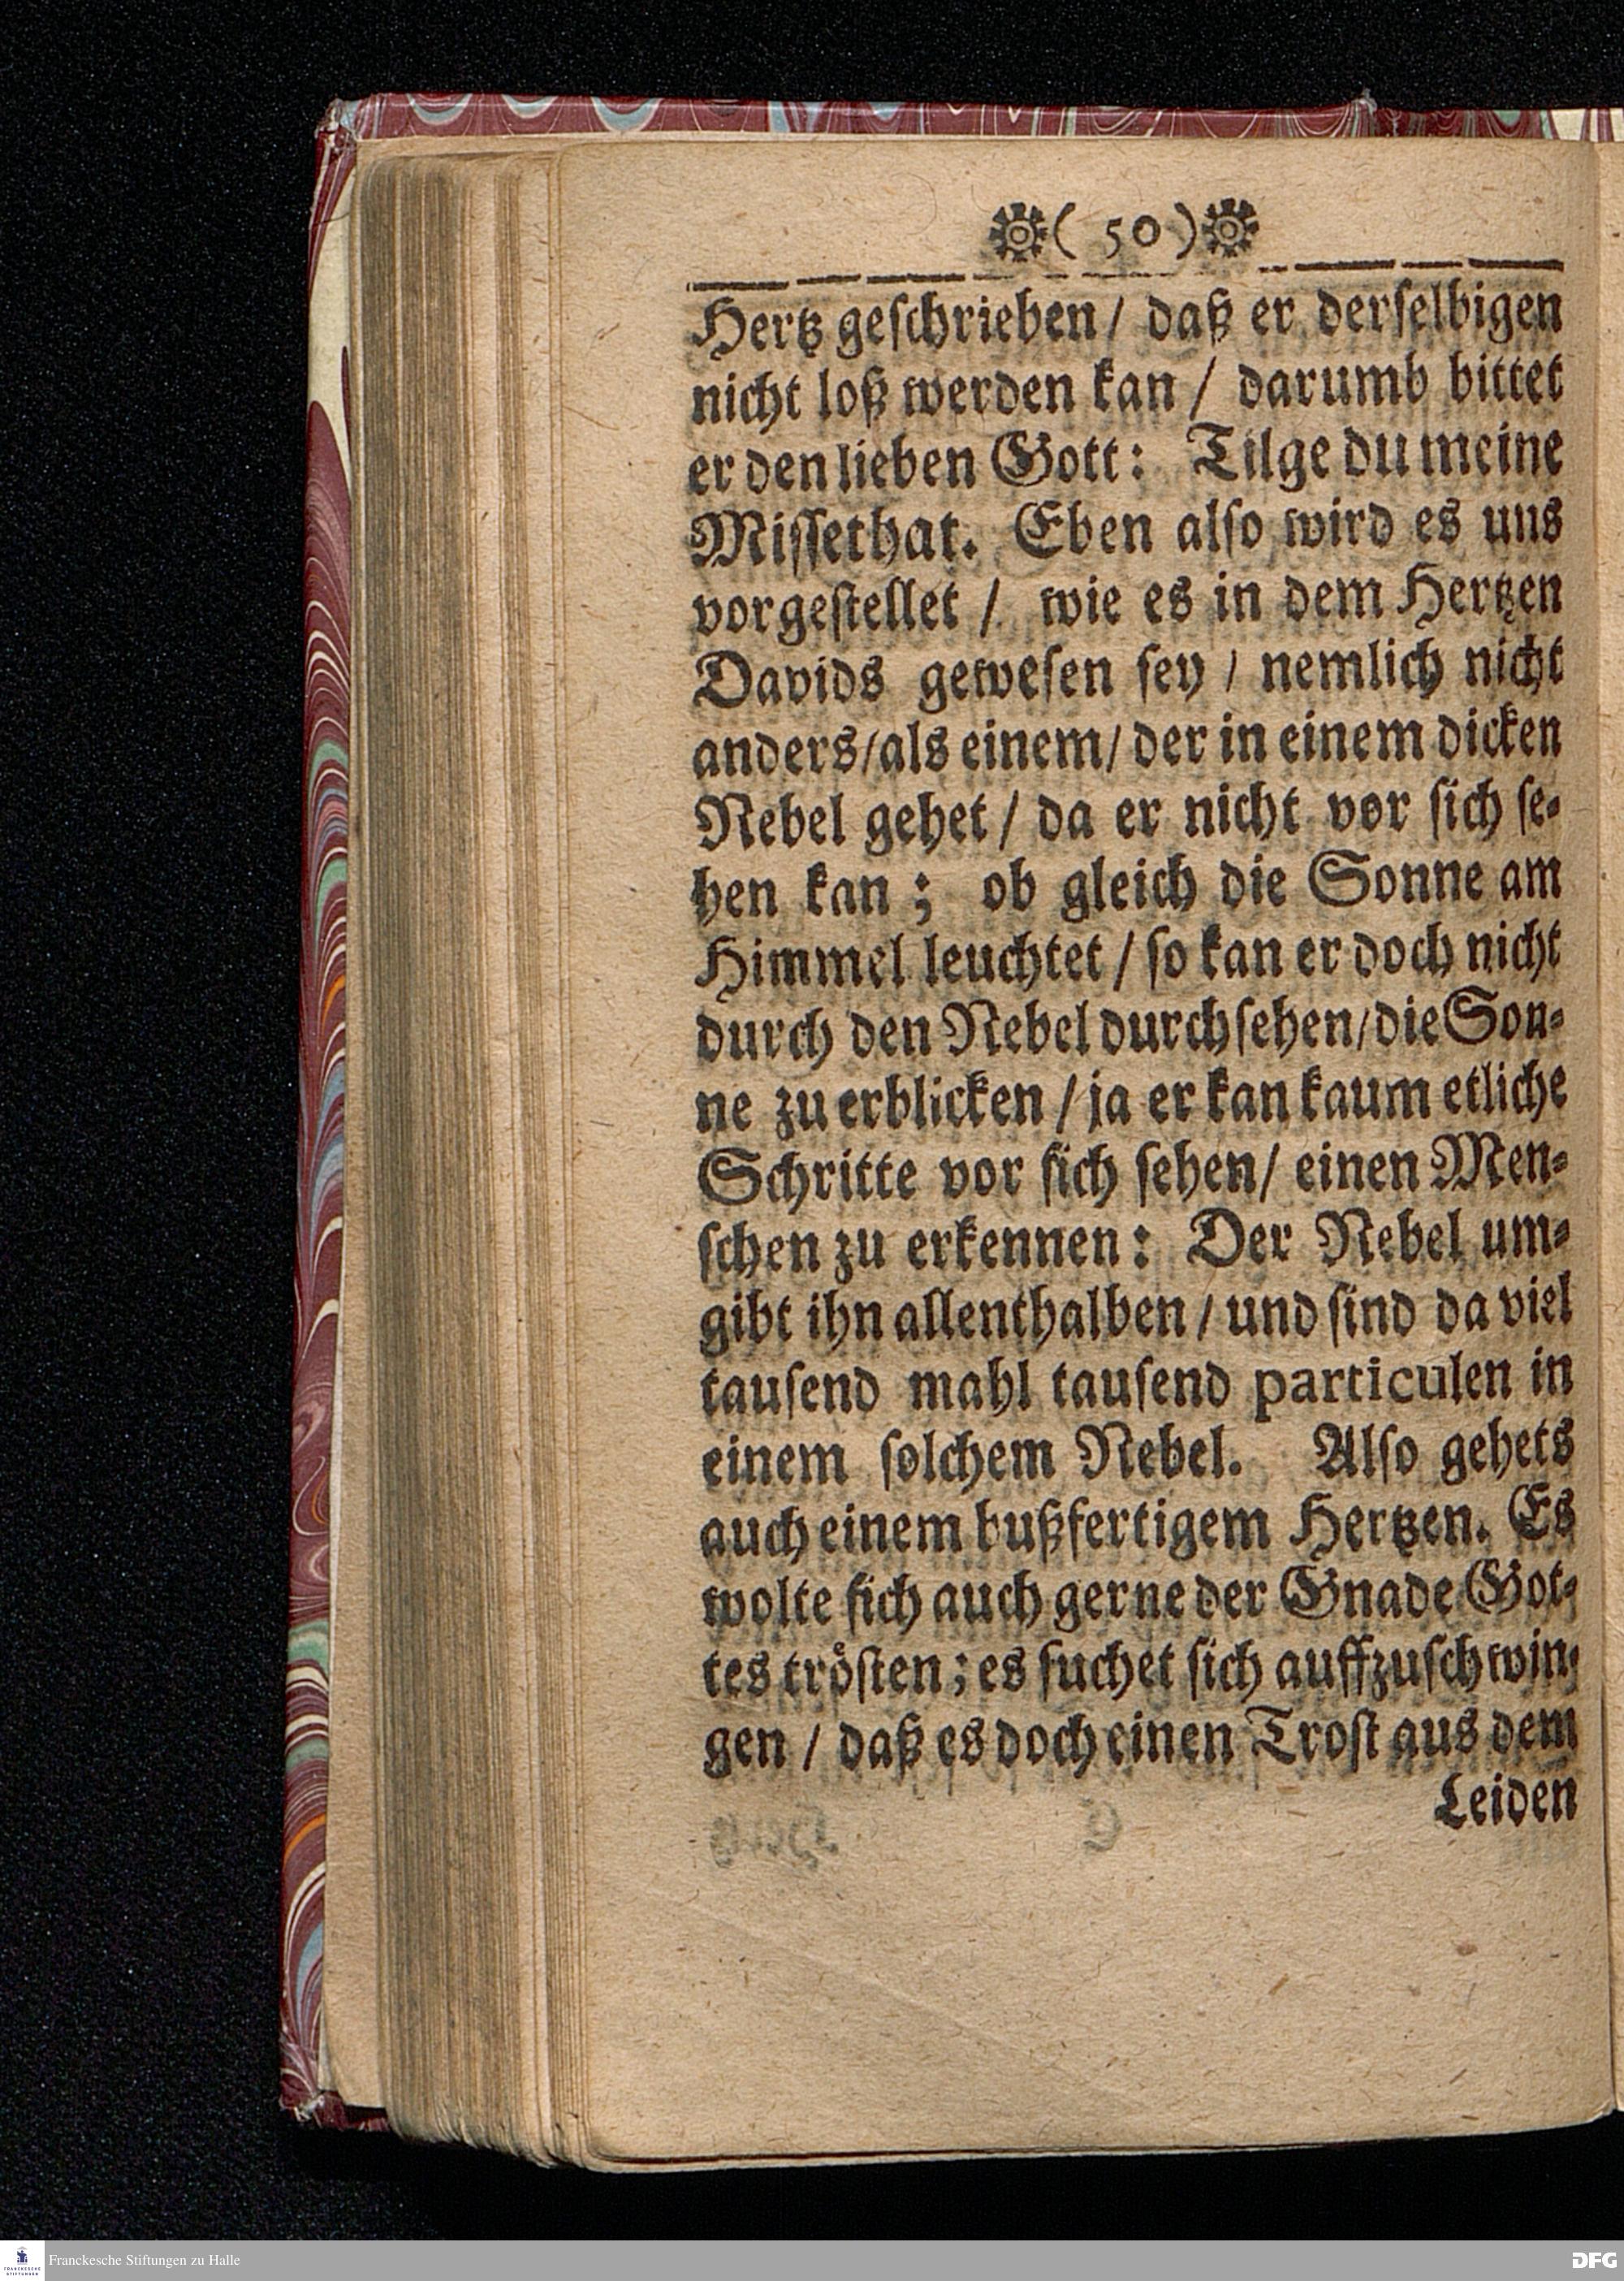 ( 50 )
Hertz geſchrieben / daß er derſelbigen
nicht loß werden kan / darumb bittet
er den lieben Gott: Tilge du meine
Miſſethat. Eben alſo wird es uns
vorgeſtellet / wie es in dem Hertzen
Davids geweſen ſey / nemlich nicht
anders / als einem / der in einem dicken
Nebel gehet / da er nicht vor ſich ſe-
hen kan ; ob gleich die Sonne am
Himmel leuchtet / ſo kan er doch nicht
durch den Nebel durchſehen / die Son-
ne zu erblicken / ja er kan kaum etliche
Schritte vor ſich ſehen / einen Men-
ſchen zu erkennen : Der Nebel um-
gibt ihn allenthalben / und ſind da viel
tauſend mahl tauſend particulen in
einem ſolchem Nebel. Alſo gehets
auch einem bußfertigem Hertzen. Es
wolte ſich auch gerne der Gnade Got-
tes troͤſten ; es ſuchet ſich auffzuſchwin-
gen / daß es doch einen Troſt aus dem
Leiden
Franckesche Stiftungen zu Halle
DFG